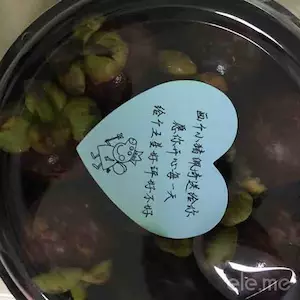 画个小猪佩奇送给你
愿你开心每一天
给个五星好评好不好
ele.me